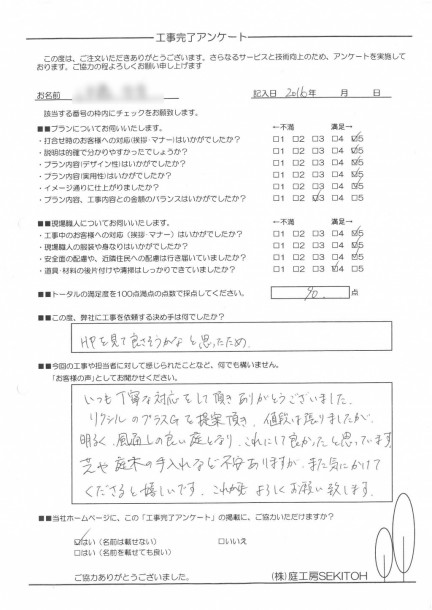 工事完了アンケート
この度は、ご注文いただきありがとうございます。さらなるサービスと技術向上のため、アンケートを実施して
おります。ご協力の程よろしくお願い申し上げます
お名前
記入日 2016年 月 日
該当する番号の枠内にチェックをお願いします。
■■プランについてお伺いいたします。 ←不満 満足→
・打合せ時のお客様への対応(挨拶・マナー)はいかがでしたか? □1 □2 □3 □4 ☑5
・説明は的確で分かりやすかったでしょうか? □1 □2 □3 □4 ☑5
・プラン内容(デザイン性)はいかがでしたか? □1 □2 □3 □4 ☑5
・プラン内容(実用性)はいかがでしたか? □1 □2 □3 □4 ☑5
・イメージ通りに仕上がりましたか? □1 □2 □3 □4 ☑5
・プラン内容、工事内容との金額のバランスはいかがでしたか? □1 □2 ☑3 □4 □5
■■現場職人についてお伺いいたします。 ←不満 満足→
・工事中のお客様への対応(挨拶・マナー)はいかがでしたか? □1 □2 □3 □4 ☑5
・現場職人の服装や身なりはいかがでしたか? □1 □2 □3 □4 ☑5
・安全面の配慮や、近隣住民への配慮は行き届いていましたか? □1 □2 □3 □4 ☑5
・道具・材料の後片付けや清掃はしっかりできていましたか? □1 □2 □3 ☑4 □5
■■トータルの満足度を100点満点の点数で採点してください。 点
■■この度、弊社に工事を依頼する決め手は何でしたか?
HPを見て良さそうかなと思ったため。
■■今回の工事や担当者に対して感じられたことなど、何でも構いません。
「お客様の声」としてお聞かせください。
いつも丁寧な対応をして頂きありがとうございました。
リクシルのプラスGを提案頂き、値段は張りましたが、
明るく、風通しの良い庭となり、これにして良かったと思っています。
芝や庭木の手入れなど不安ありますが、また気にかけて
くださると嬉しいです。これからもよろしくお願い致します。
■■当社ホームページに、この「工事完了アンケート」の掲載に、ご協力いただけますか?
☑はい(名前は載せない) □いいえ
□はい(名前を載せても良い)
ご協力ありがとうございました。
(株)庭工房SEKITOH